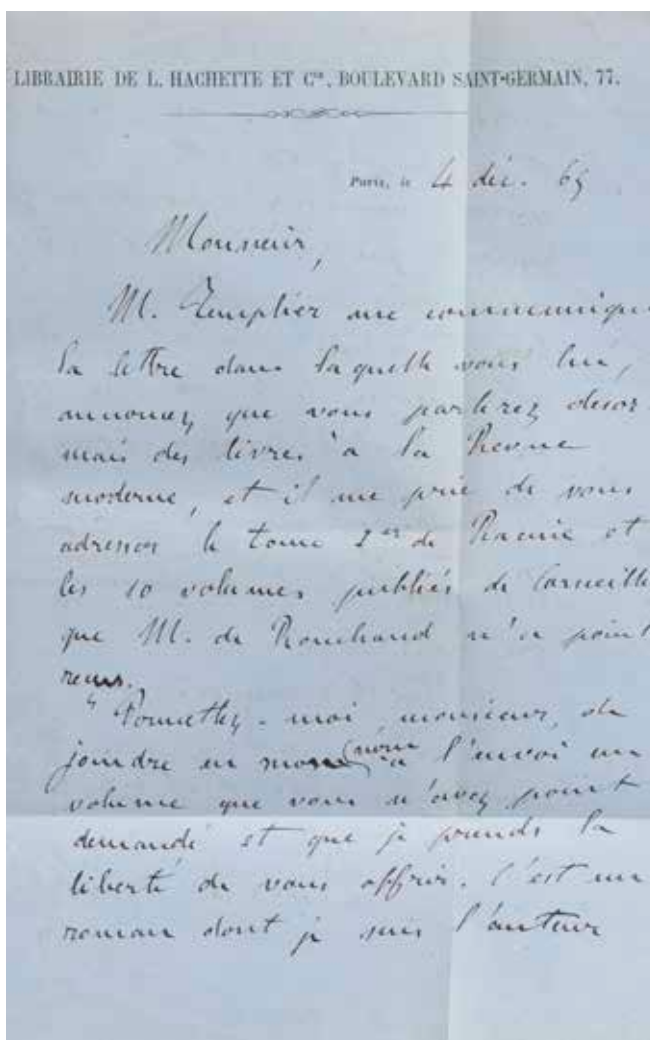 LIBRAIRIE DE L. HACHETTE ET Cie, BOULEVARD SAINT-GERMAIN, 77.
Paris, le 4 déc. 65
Monsieur,
M. Templier me communique
la lettre dans laquelle vous lui
annoncez que vous parlerez désor-
mais des livres à la Revue
moderne, et il me prie de vous
adresser le tome 1er de Racine et
les 10 volumes publiés de Corneille
que M. de Ronchaud n'a point
reçus.
Permettez-moi, monsieur, de
joindre en mon nom à l'envoi un
volume que vous n'avez point
demandé et que je prends la
liberté de vous offrir. C'est un
roman dont je suis l'auteur